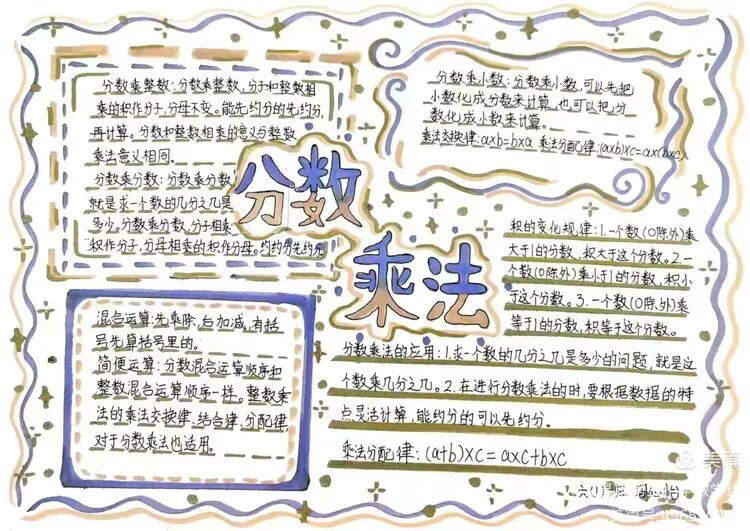 分数乘整数:分数乘整数,分子和整数相
乘的积作分子,分母不变。能先约分的先约分,
再计算。分数和整数相乘的意义与整数
乘法意义相同。
分数乘分数:分数乘分数
就是求一个数的几分之几是
多少。分数乘分数,分子相乘
积作分子,分母相乘的积作分母。约约分先约分
分数乘小数:分数乘小数,可以先把
小数化成分数来计算,也可以把分
数化成小数来计算。
乘法交换律:a×b=b×a 乘法分配律:(a×b)×c=a×(b×c)
分数
乘法
积的变化规律:1.一个数(0除外)乘
大于1的分数,积大于这个分数。2.一
个数(0除外)乘小于1的分数,积小
于这个分数。3.一个数(0除外)乘
等于1的分数,积等于这个分数。
混合运算:先乘除,后加减,有括
号先算括号里的。
简便运算:分数混合运算顺序和
整数混合运算顺序一样。整数乘
法的乘法交换律、结合律、分配律
对于分数乘法也适用。
分数乘法的应用:1.求一个数的几分之几是多少的问题,就是这
个数乘几分之几。2.在进行分数乘法的时,要根据数据的特
点灵活计算,能约分的可以先约分。
乘法分配律:(a+b)×c=a×c+b×c
六(1)班
美篇